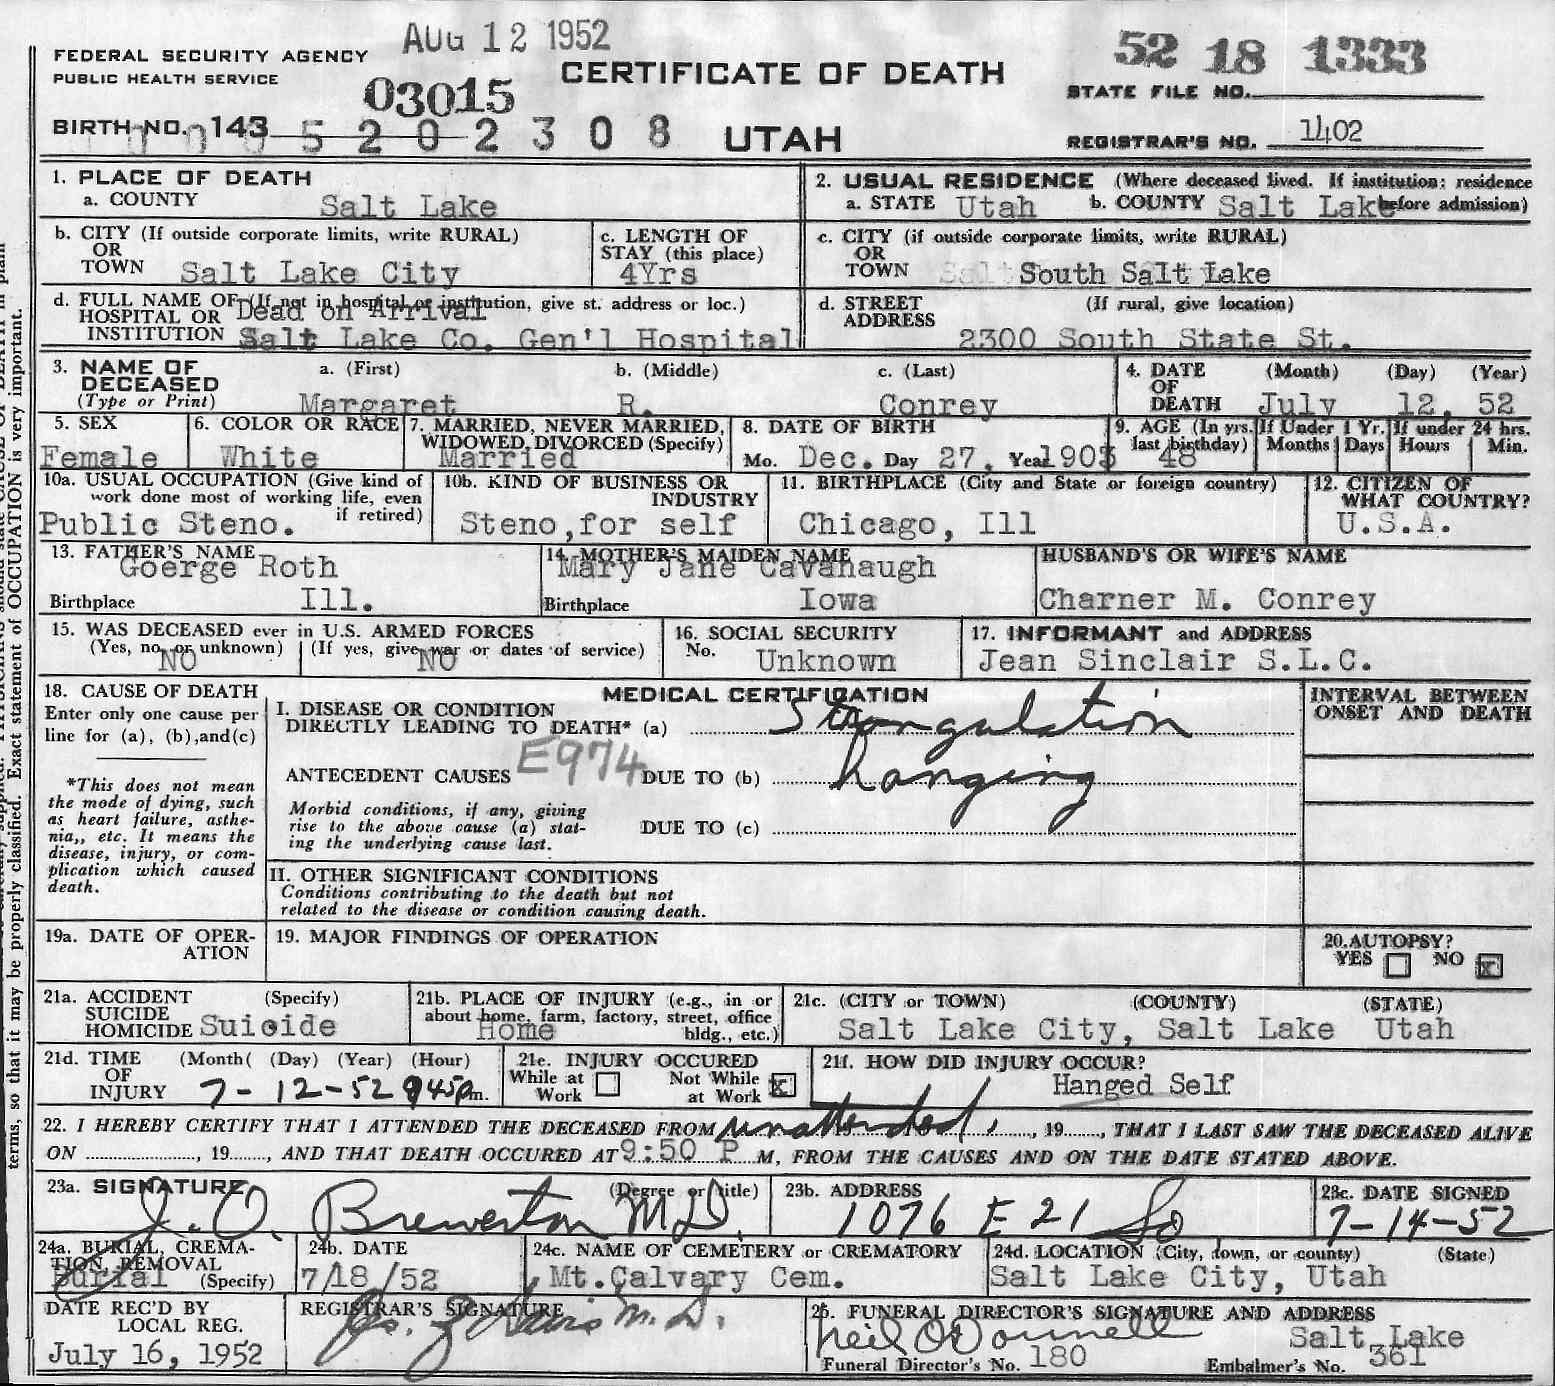 AUG 12 1952
FEDERAL SECURITY AGENCY
PUBLIC HEALTH SERVICE
03015
CERTIFICATE OF DEATH
52 18 1333
STATE FILE NO.
BIRTH NO. 143 5 2 0 2 3 0 8 UTAH
REGISTRAR'S NO. 1402
1. PLACE OF DEATH
a. COUNTY Salt Lake
2. USUAL RESIDENCE (Where deceased lived. If institution: residence before admission)
a. STATE Utah b. COUNTY Salt Lake
b. CITY (If outside corporate limits, write RURAL)
OR
TOWN Salt Lake City
c. LENGTH OF
STAY (this place)
4Yrs
c. CITY (if outside corporate limits, write RURAL)
OR
TOWN South Salt Lake
d. FULL NAME OF (If not in hospital or institution, give st. address or loc.)
HOSPITAL OR Dead on Arrival
INSTITUTION Salt Lake Co. Gen'l Hospital
d. STREET (If rural, give location)
ADDRESS
2300 South State St.
3. NAME OF
DECEASED
(Type or Print)
a. (First) b. (Middle) c. (Last)
Margaret R. Conrey
4. DATE (Month) (Day) (Year)
OF
DEATH July 12, 52
5. SEX
Female
6. COLOR OR RACE
White
7. MARRIED, NEVER MARRIED,
WIDOWED, DIVORCED (Specify)
Married
8. DATE OF BIRTH
Mo. Dec. Day 27, Year 1903
9. AGE (In yrs.
last birthday)
48
If Under 1 Yr.
Months Days
If under 24 hrs.
Hours Min.
10a. USUAL OCCUPATION (Give kind of
work done most of working life, even
if retired)
Public Steno.
10b. KIND OF BUSINESS OR
INDUSTRY
Steno,for self
11. BIRTHPLACE (City and State or foreign country)
Chicago, Ill
12. CITIZEN OF
WHAT COUNTRY?
U.S.A.
13. FATHER'S NAME
Goerge Roth
Birthplace Ill.
14. MOTHER'S MAIDEN NAME
Mary Jane Cavanaugh
Birthplace Iowa
HUSBAND'S OR WIFE'S NAME
Charner M. Conrey
15. WAS DECEASED ever in U.S. ARMED FORCES
(Yes, no, or unknown) (If yes, give war or dates of service)
NO NO
16. SOCIAL SECURITY
No. Unknown
17. INFORMANT and ADDRESS
Jean Sinclair S.L.C.
18. CAUSE OF DEATH
Enter only one cause per
line for (a), (b),and(c)
*This does not mean
the mode of dying, such
as heart failure, asthe-
nia,, etc. It means the
disease, injury, or com-
plication which caused
death.
MEDICAL CERTIFICATION
I. DISEASE OR CONDITION
DIRECTLY LEADING TO DEATH* (a) Strangulation
E974
ANTECEDENT CAUSES DUE TO (b) hanging
Morbid conditions, if any, giving
rise to the above cause (a) stat-
ing the underlying cause last.
DUE TO (c)
II. OTHER SIGNIFICANT CONDITIONS
Conditions contributing to the death but not
related to the disease or condition causing death.
INTERVAL BETWEEN
ONSET AND DEATH
19a. DATE OF OPER-
ATION
19. MAJOR FINDINGS OF OPERATION
20. AUTOPSY?
YES NO x
21a. ACCIDENT (Specify)
SUICIDE
HOMICIDE Suicide
21b. PLACE OF INJURY (e.g., in or
about home, farm, factory, street, office
bldg., etc.)
Home
21c. (CITY or TOWN) (COUNTY) (STATE)
Salt Lake City, Salt Lake Utah
21d. TIME (Month( (Day) (Year) (Hour)
OF
INJURY 7-12-52 945pm.
21e. INJURY OCCURED
While at
Work
Not While
at Work x
21f. HOW DID INJURY OCCUR?
Hanged Self
22. I HEREBY CERTIFY THAT I ATTENDED THE DECEASED FROM unattended, 19, THAT I LAST SAW THE DECEASED ALIVE
ON, 19, AND THAT DEATH OCCURED AT 9:50 P M, FROM THE CAUSES AND ON THE DATE STATED ABOVE.
23a. SIGNATURE (Degree or title)
J. O. Brewerton M.D.
23b. ADDRESS
1076 E 21 So
23c. DATE SIGNED
7-14-52
24a. BURIAL, CREMA-
TION, REMOVAL
Burial (Specify)
24b. DATE
7/18/52
24c. NAME OF CEMETERY or CREMATORY
Mt.Calvary Cem.
24d. LOCATION (City, town, or county) (State)
Salt Lake City, Utah
DATE REC'D BY
LOCAL REG.
July 16, 1952
REGISTRAR'S SIGNATURE
M.D.
25. FUNERAL DIRECTOR'S SIGNATURE AND ADDRESS
Neil O'Donnell Salt Lake
Funeral Director's No. 180 Embalmer's No. 361
terms, so that it may be properly classified. Exact statement of OCCUPATION is very important.